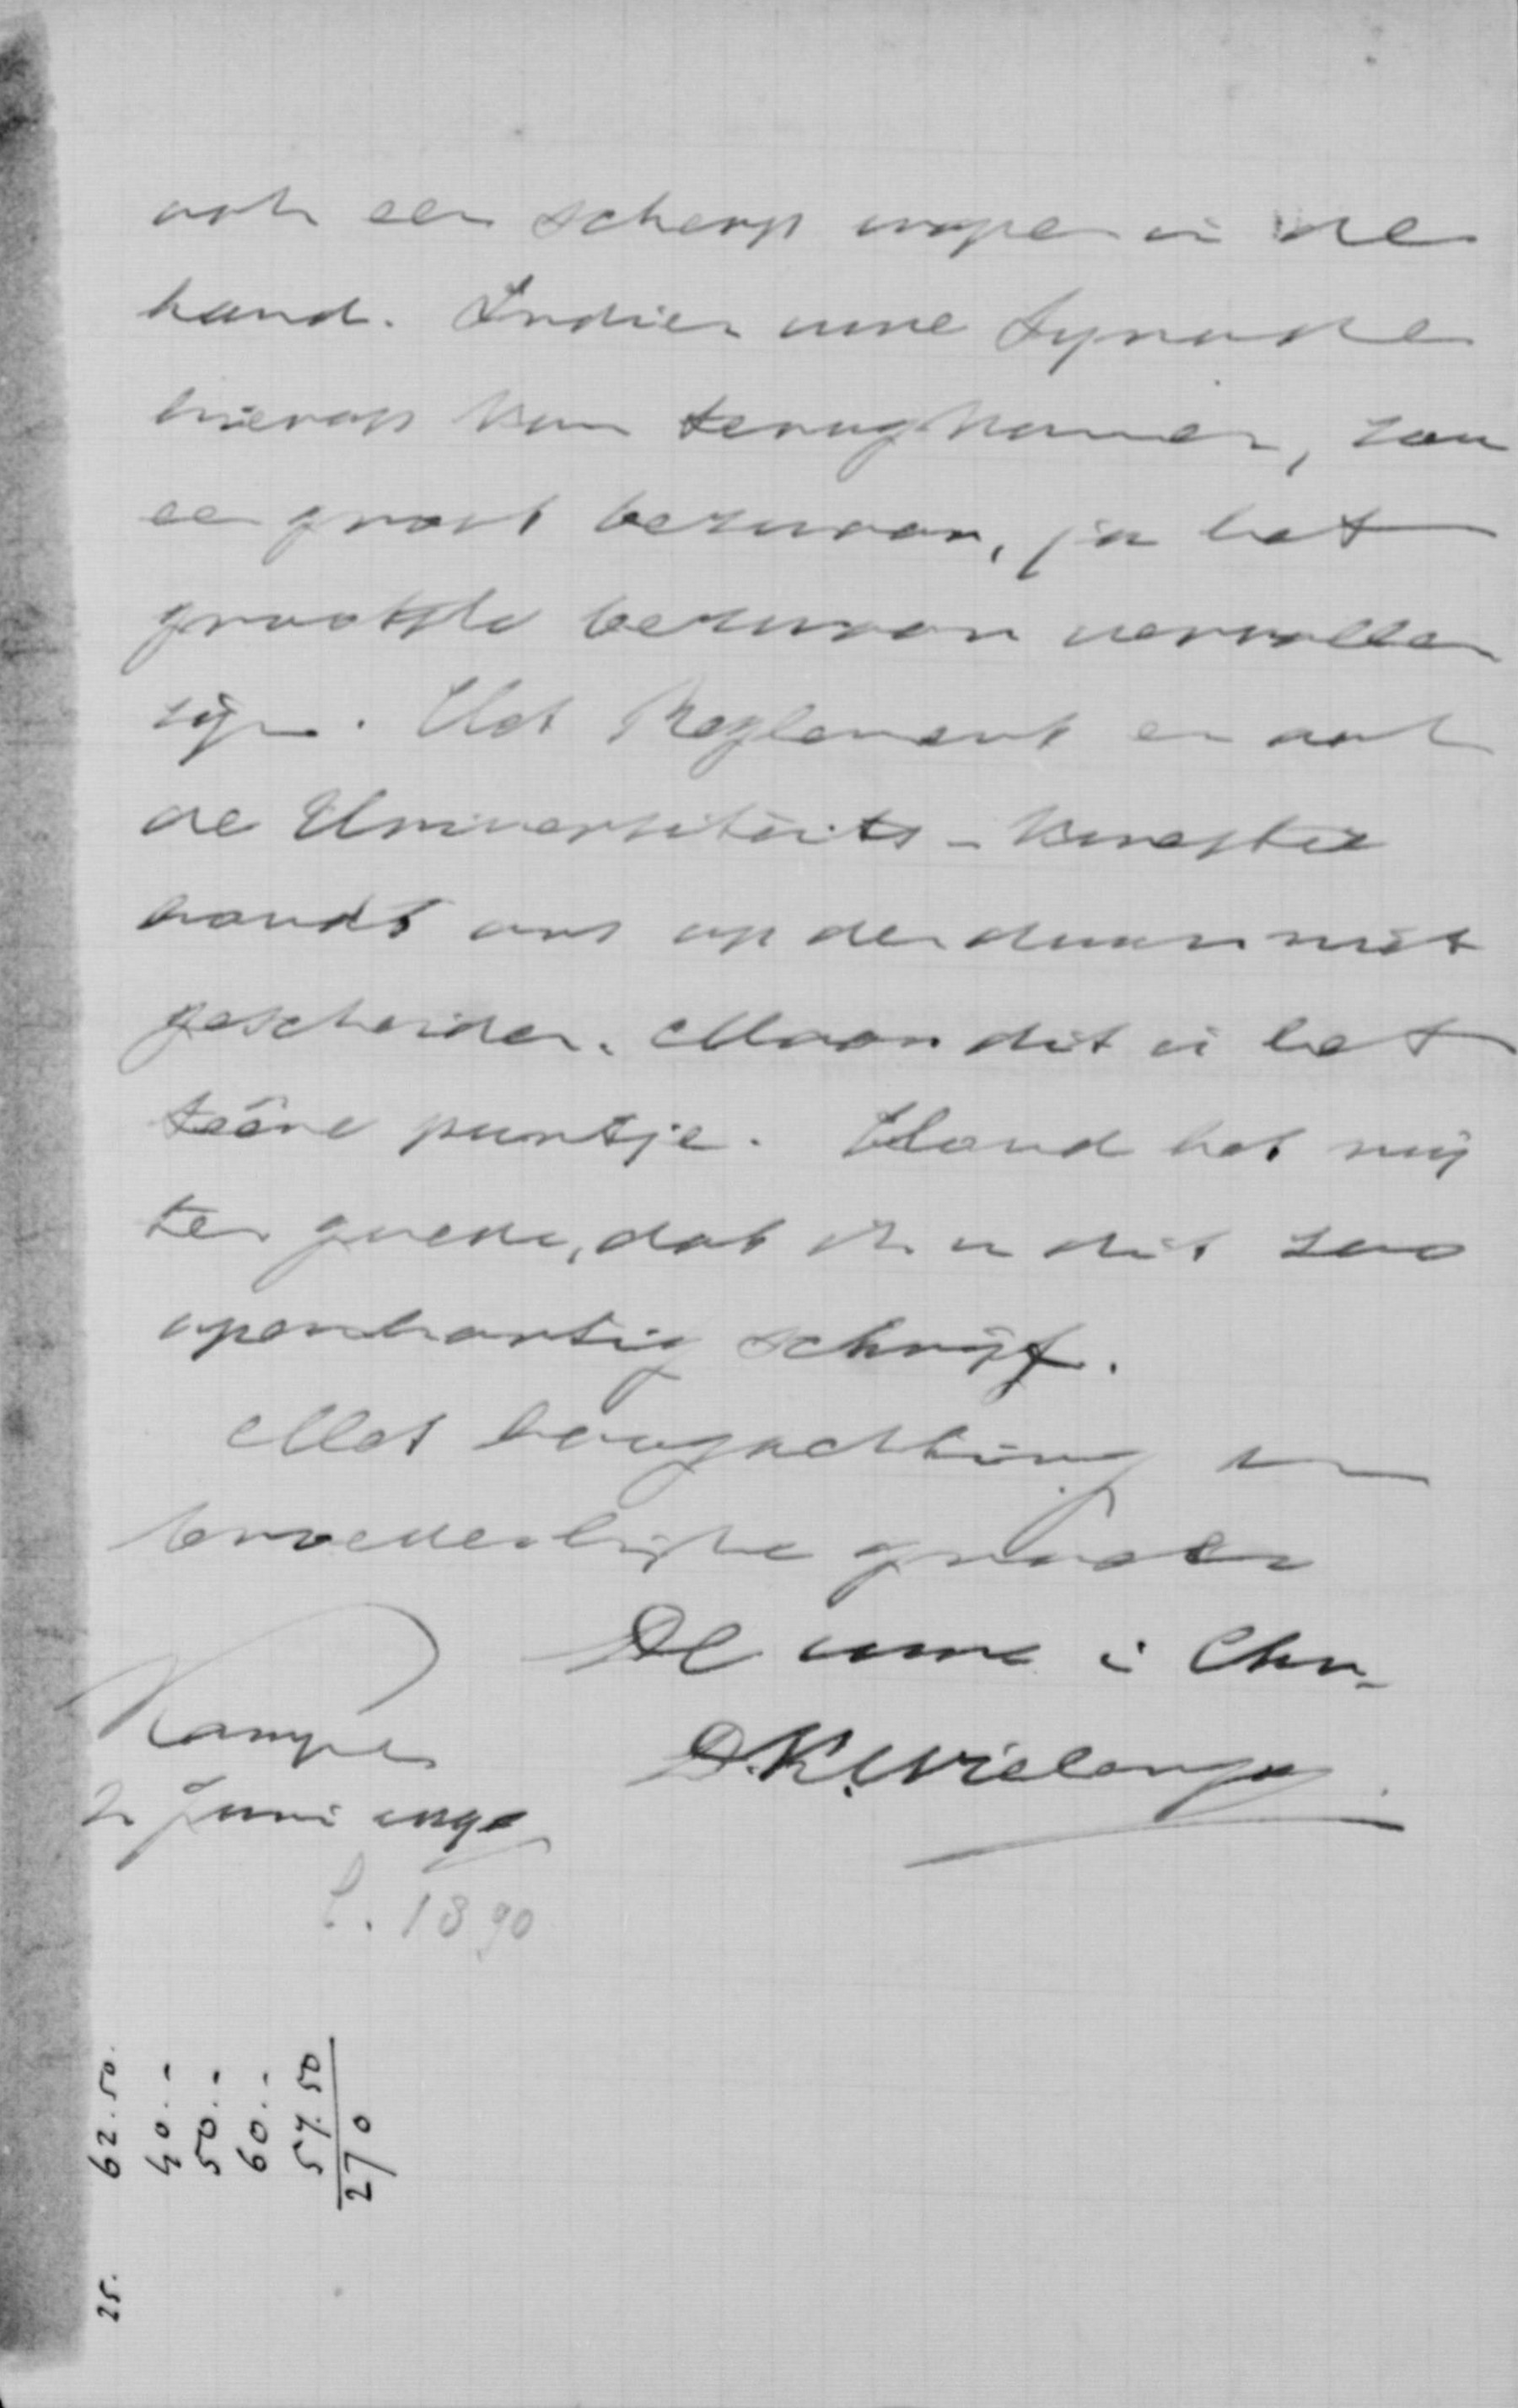 ook een scherp wapen in de
hand. Indien uwe Synode
hierop kon terugkomen, zou
een groot bezwaar, ja het
grootste bezwaar vervallen
zijn. Het Reglement en ook
de Universiteits-kwestie
houdt ons op den duur niet
gescheiden. Maar dit is het
teêre puntje. Houd het mij
ten goede, dat ik u dit zoo
openhartig schrijf.
Met hoogachting en
broederlijke groeten
De uwe i Chr.
D.K. Wielenga
Kampen
2 Juni
1890
62.50.
40.-
50.-
60.-
57.50
270
25.